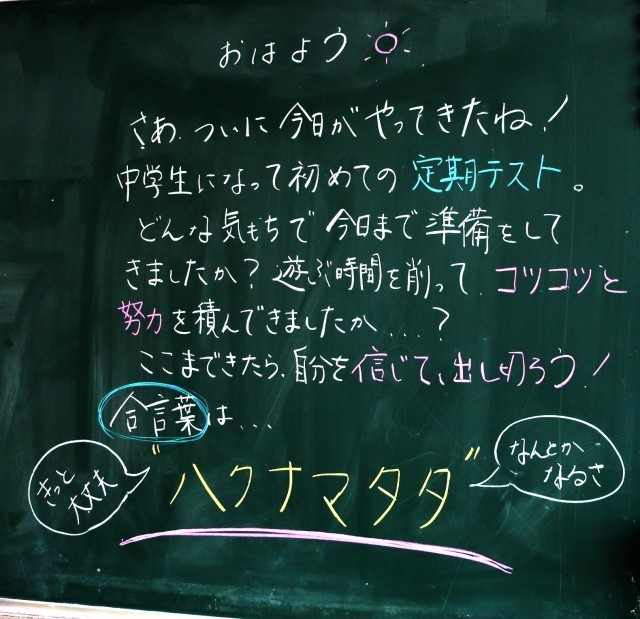 おはよう
さあ、ついに今日がやってきたね!
中学生になって初めての定期テスト。
どんな気もちで今日まで準備をして
きましたか?遊ぶ時間を削って、コツコツと
努力を積んできましたか...?
ここまできたら、自分を信じて、出し切ろう!
合言葉は...
きっと
大丈夫
"ハクナマタタ"
なんとか
なるさ